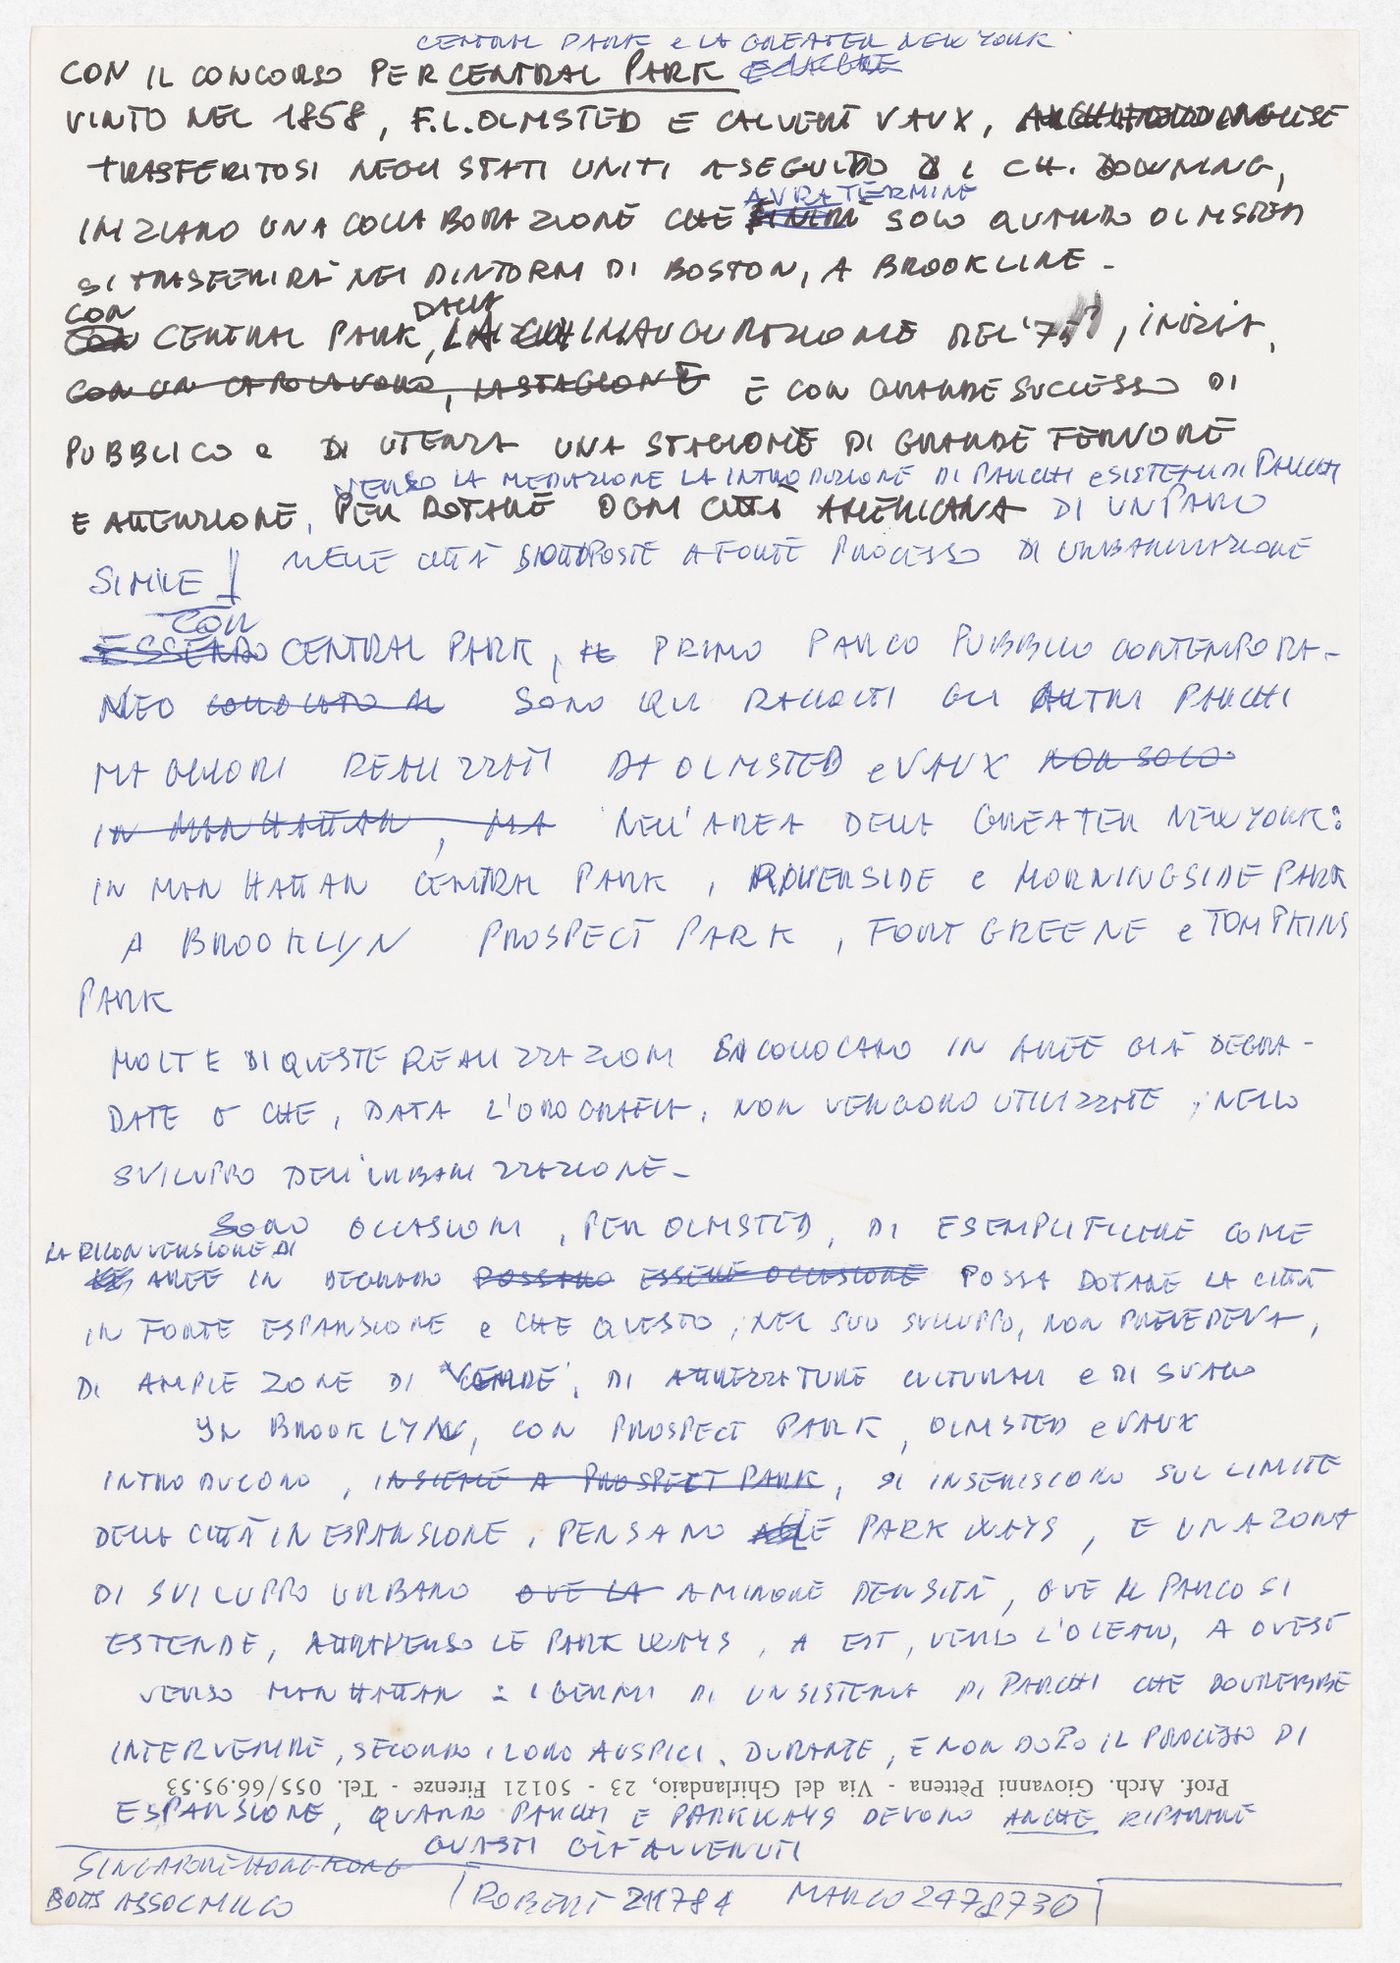 CENTRAL PARK e LA GREATER NEW YORK
CON IL CONCORSO PER CENTRAL PARK
VINTO NEL 1858, F.L. OLMSTED E CALVERT VAUX, ARCHITETTO INGLESE
TRASFERITOSI NEGLI STATI UNITI A SEGUITO DI CH. DOWNING,
AVRA TERMINE
INIZIANO UNA COLLABORAZIONE CHE FINIRÀ SOLO QUANDO OLMSTED
SI TRASFERIRÀ NEI DINTORNI DI BOSTON, A BROOKLINE -
CON DALLA
CENTRAL PARK, INAUGURAZIONE DEL '7 , INIZIA,
CON UN CAPOLAVORO, LA STAGIONE E CON GRANDE SUCCESSO DI
PUBBLICO e DI UTENZA UNA STAGIONE DI GRANDE FERVORE
VERSO LA MEDIAZIONE LA INTRODUZIONE DI PARCHI e SISTEMI DI PARCHI
E ATTENZIONE, PER DOTARE OGNI CITTÀ AMERICANA DI UN PARCO
SIMILE NELLE CITTÀ SOTTOPOSTE A FORTE PROCESSO DI URBANIZZAZIONE
CON
ESSENDO CENTRAL PARK, IL PRIMO PARCO PUBBLICO CONTEMPORA-
NEO COLLOCATO IN SONO QUI RACCOLTI GLI ALTRI PARCHI
MAGGIORI REALIZZATI DA OLMSTED e VAUX NON SOLO
IN MANHATTAN, MA NELL'AREA DELLA GREATER NEW YORK:
IN MANHATTAN CENTRAL PARK, RIVERSIDE e MORNINGSIDE PARK
A BROOKLYN PROSPECT PARK, FORT GREENE e TOMPKINS
PARK
MOLTE DI QUESTE REALIZZAZIONI SI COLLOCANO IN AREE GIÀ DEGRA-
DATE O CHE, DATA L'OROGRAFIA, NON VENGONO UTILIZZATE, NELLO
SVILUPPO DELL'URBANIZZAZIONE -
SONO OCCASIONI, PER OLMSTED, DI ESEMPLIFICARE COME
LA RICONVERSIONE DI
AREE IN DEGRADO POSSANO ESSERE OCCASIONE POSSA DOTARE LA CITTÀ
IN FORTE ESPANSIONE e CHE QUESTO, NEL SUO SVILUPPO, NON PREVEDEVA,
DI AMPLE ZONE DI 'VERDE', DI ATTREZZATURE CULTURALI e DI SVAGO
IN BROOKLYN, CON PROSPECT PARK, OLMSTED e VAUX
INTRODUCONO, INSIEME A PROSPECT PARK, SI INSERISCONO SUL LIMITE
DELLA CITTÀ IN ESPANSIONE, PENSANO ALLE PARKWAYS, E UNA ZONA
DI SVILUPPO URBANO OVE LA A MINORE DENSITÀ, OVE IL PARCO SI
ESTENDE, ATTRAVERSO LE PARKWAYS, A EST, VERSO L'OCEANO, A OVEST
VERSO MANHATTAN: I GERMI DI UN SISTEMA DI PARCHI CHE DOVREBBE
INTERVENIRE, SECONDO I LORO AUSPICI, DURANTE, E NON DOPO IL PROCESSO DI
Prof. Arch. Giovanni Pettena - Via del Ghirlandaio, 23 - 50121 Firenze - Tel. 055/66.95.53
ESPANSIONE, QUANDO PARCHI E PARKWAYS DEVONO ANCHE RIPARARE
GUASTI GIÀ AVVENUTI
SINGAPORE HONG KONG
ROBERT 211784 MARCO 2478730